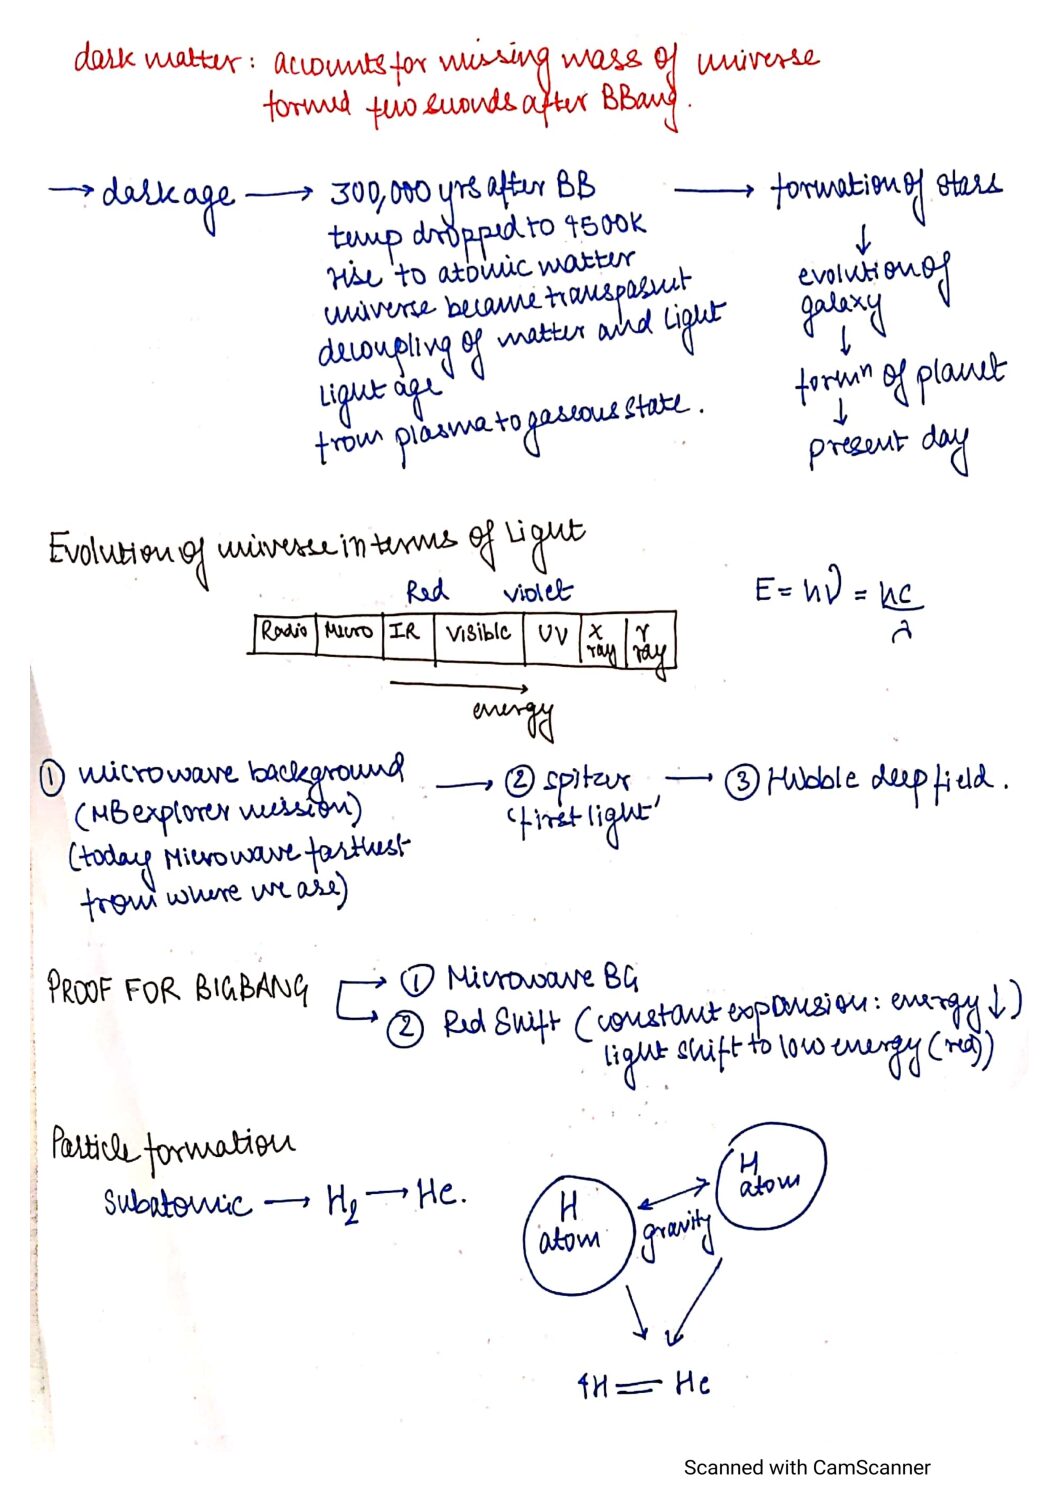 dark matter: accounts for missing mass of universe
formed two seconds after BBang.
→ dark age → 300,000 yrs after BB → formation of stars
temp dropped to 4500K
rise to atomic matter
universe became transparent
decoupling of matter and light
light age
from plasma to gaseous state.
↓
evolution of
galaxy
↓
formⁿ of planet
↓
present day
Evolution of universe in terms of light
Red violet
Radio Micro IR visible UV X ray γ ray
energy
E = hν = hc/λ
① microwave background → ② spitzer → ③ Hubble deep field.
(MB explorer mission) 'first light'
(today Microwave farthest
from where we are)
PROOF FOR BIGBANG → ① Microwave BG
→ ② Red Shift (constant expansion: energy ↓)
light shift to low energy (red))
Particle formation
Subatomic → H₂ → He.
H
atom
gravity
H
atom
4H = He
Scanned with CamScanner